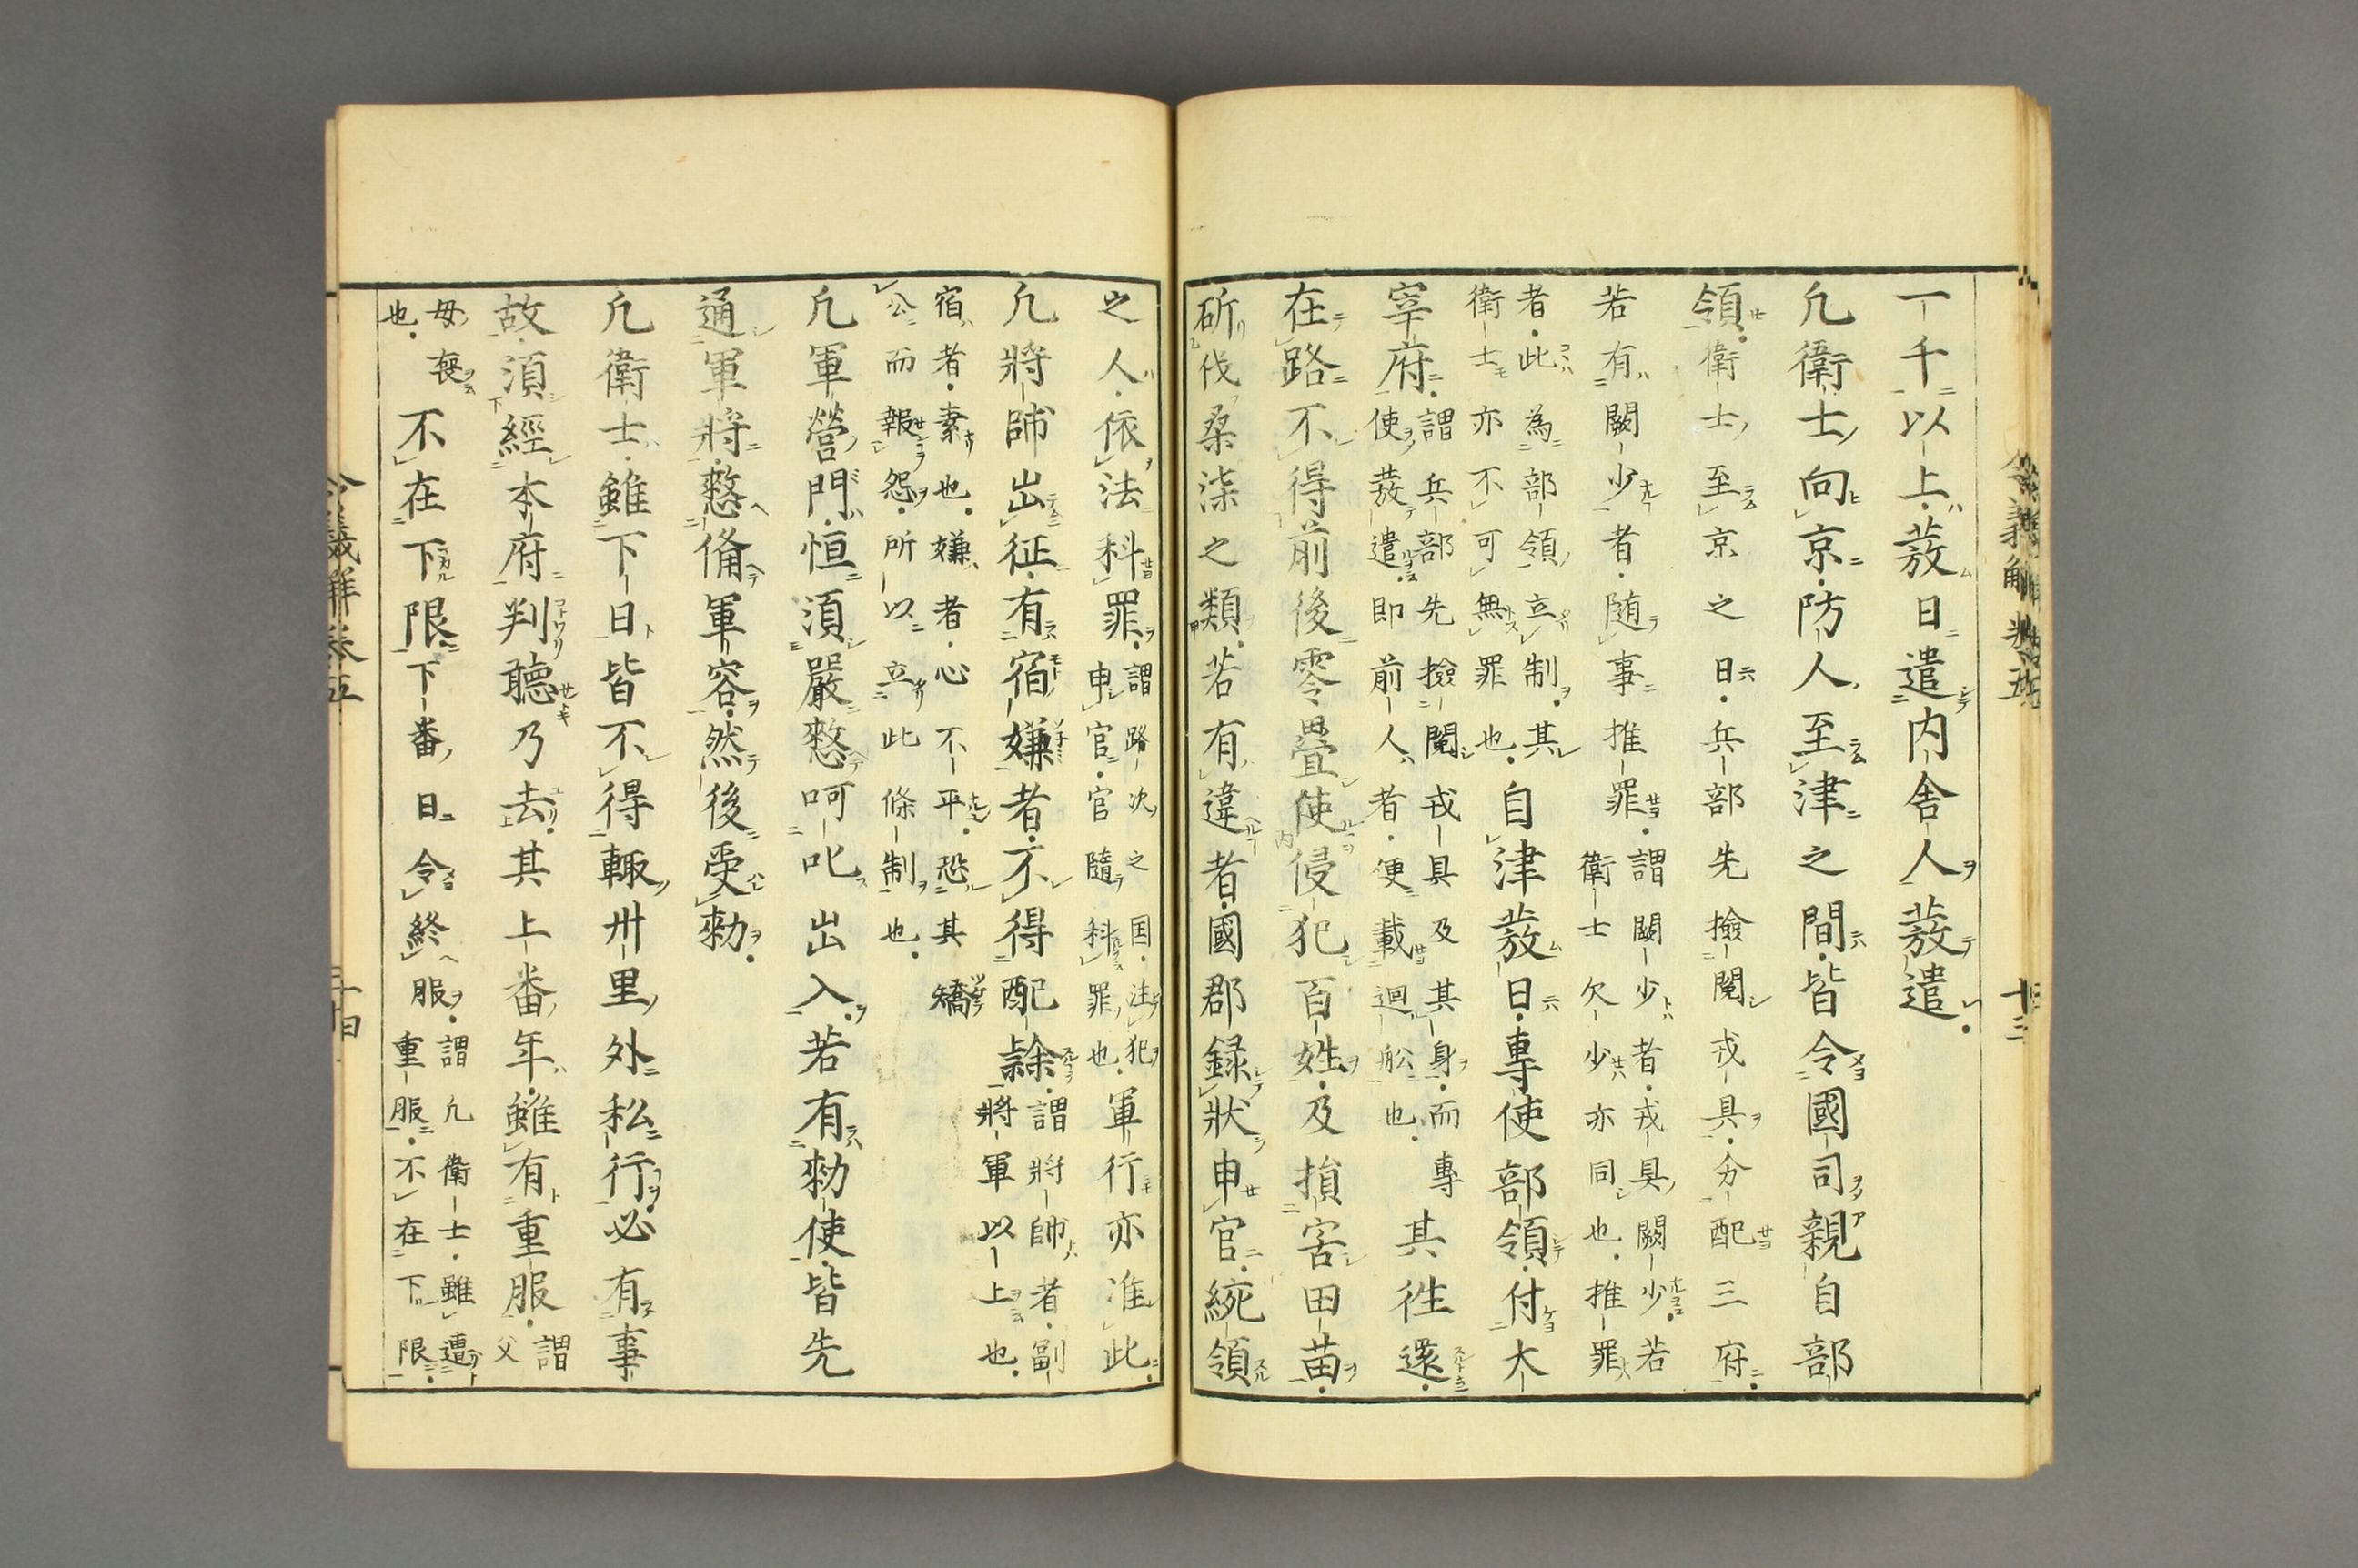 一千以上發日遣内舎人發遣
凡衛士向京防人至津之間皆令國司親自部
領衛士至京之日兵部先撿閲戎具分配三府
若有闕少者随事推罪謂闕少者戎具闕少若
衛士欠少亦同也推罪
者此為部領立制其
衛士亦不可無罪也自津發日專使部領付大
宰府謂兵部先撿閲戎具及其身而專
使發遣即前人者便載迴舩也其往還
在路不得前後零疊使侵犯百姓及損害田苗
斫伐桒柒之類若有違者國郡録狀申官統領
之人依法科罪謂路次之国注犯
申官官随科罪也軍行亦准此
凡將帥出征有宿嫌者不得配隷謂將帥者副
將軍以上也
宿者素也嫌者心不平恐其矯
公而報怨所以立此條制也
凡軍營門恒須嚴整呵叱出入若有勑使皆先
通軍將整備軍容然後受勑
凡衛士雖下日皆不得輙卅里外私行必有事
故須經本府判聽乃去其上番年雖有重服謂
父
母喪
也不在下限下番日令終服謂凡衛士雖遭
重服不在下限
令義解卷五
十三